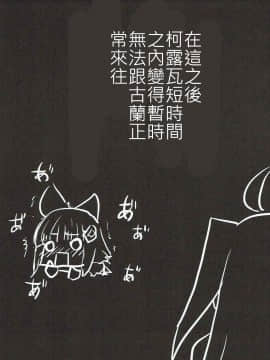 在這之後
柯露瓦短時間
之內變得暫時
無法跟古蘭正
常來往
あ゛ぁ
あ゛ぁ
あ゛ぁ
あ゛ぁ